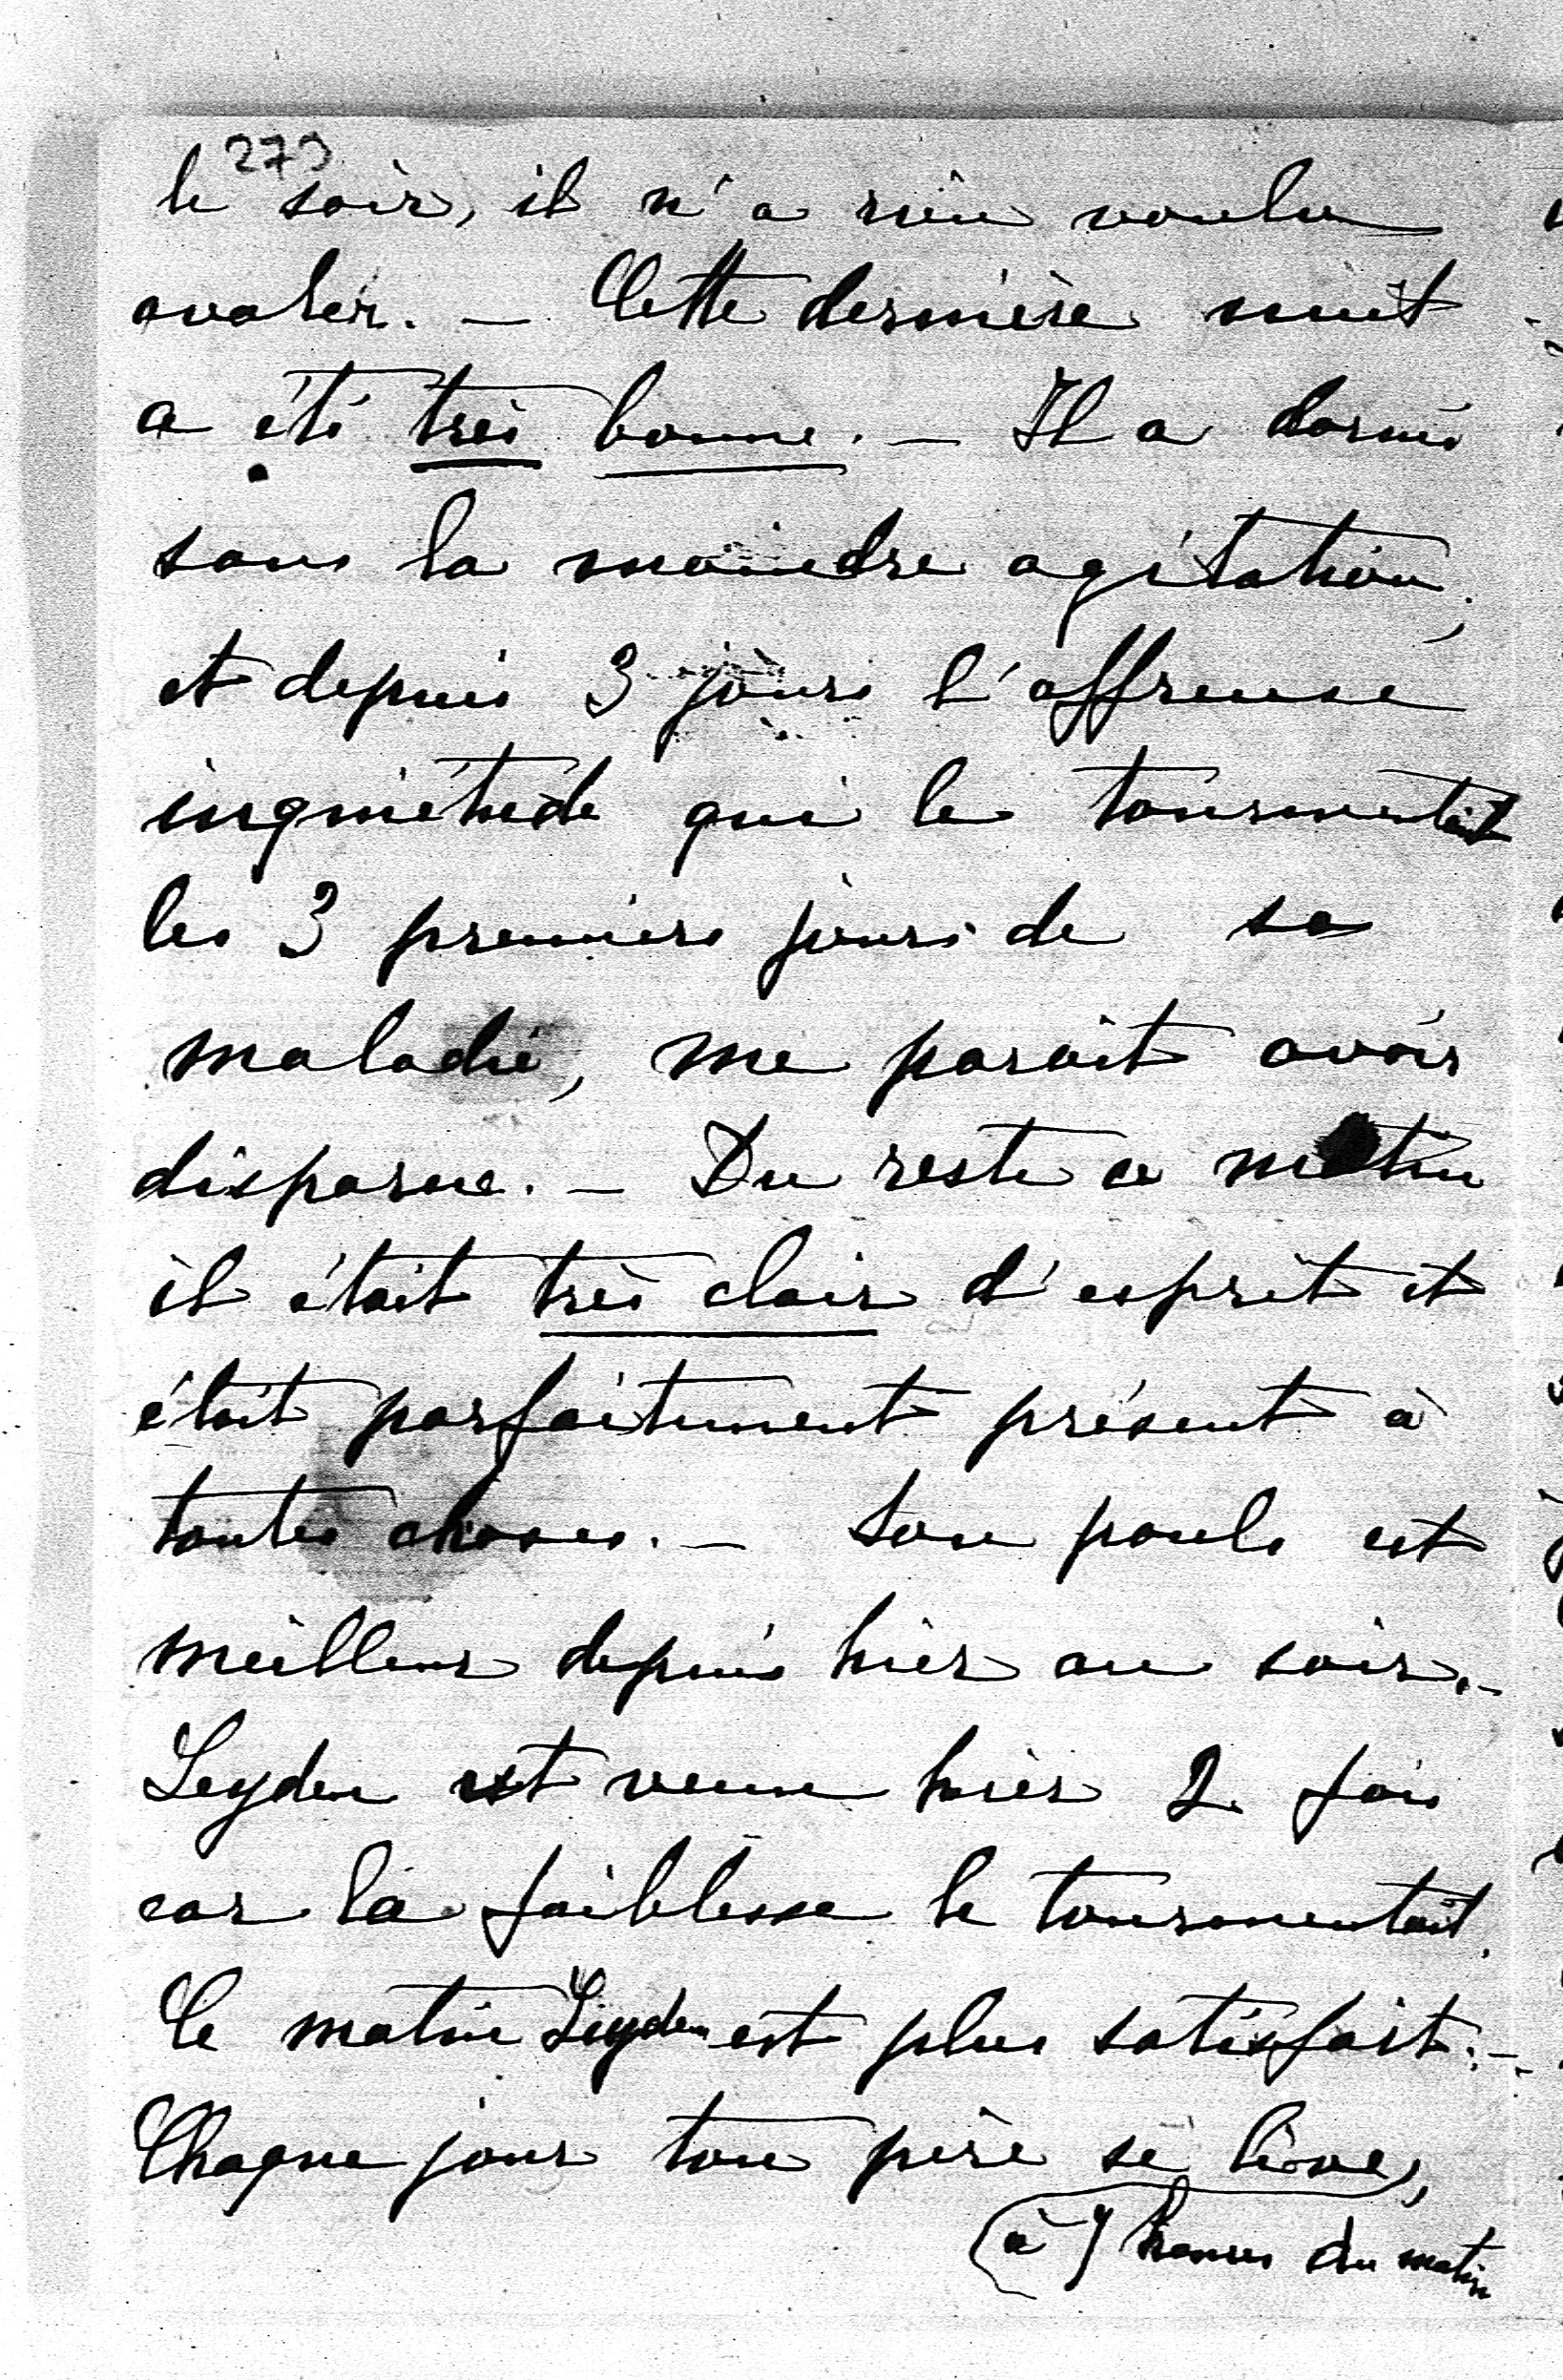 273
le soir, il n'a rien voulu
avaler. — Cette dernière nuit
a été très bonne. — Il a dormi
sans la moindre agitation,
et depuis 3 jours l'affreuse
inquiétude qui le tourmentait
les 3 premiers jours de sa
maladie, me parait avoir
disparue. — Du reste ce matin
il était très clair d'esprit et
était parfaitement présent à
toutes choses. — Son pouls est
meilleur depuis hier au soir. —
Leyden est venu hier 2 fois
car la faiblesse le tourmentait.
Ce matin Leyden est plus satisfait. —
Chaque jour ton père se lève,
(à 9 heures du matin